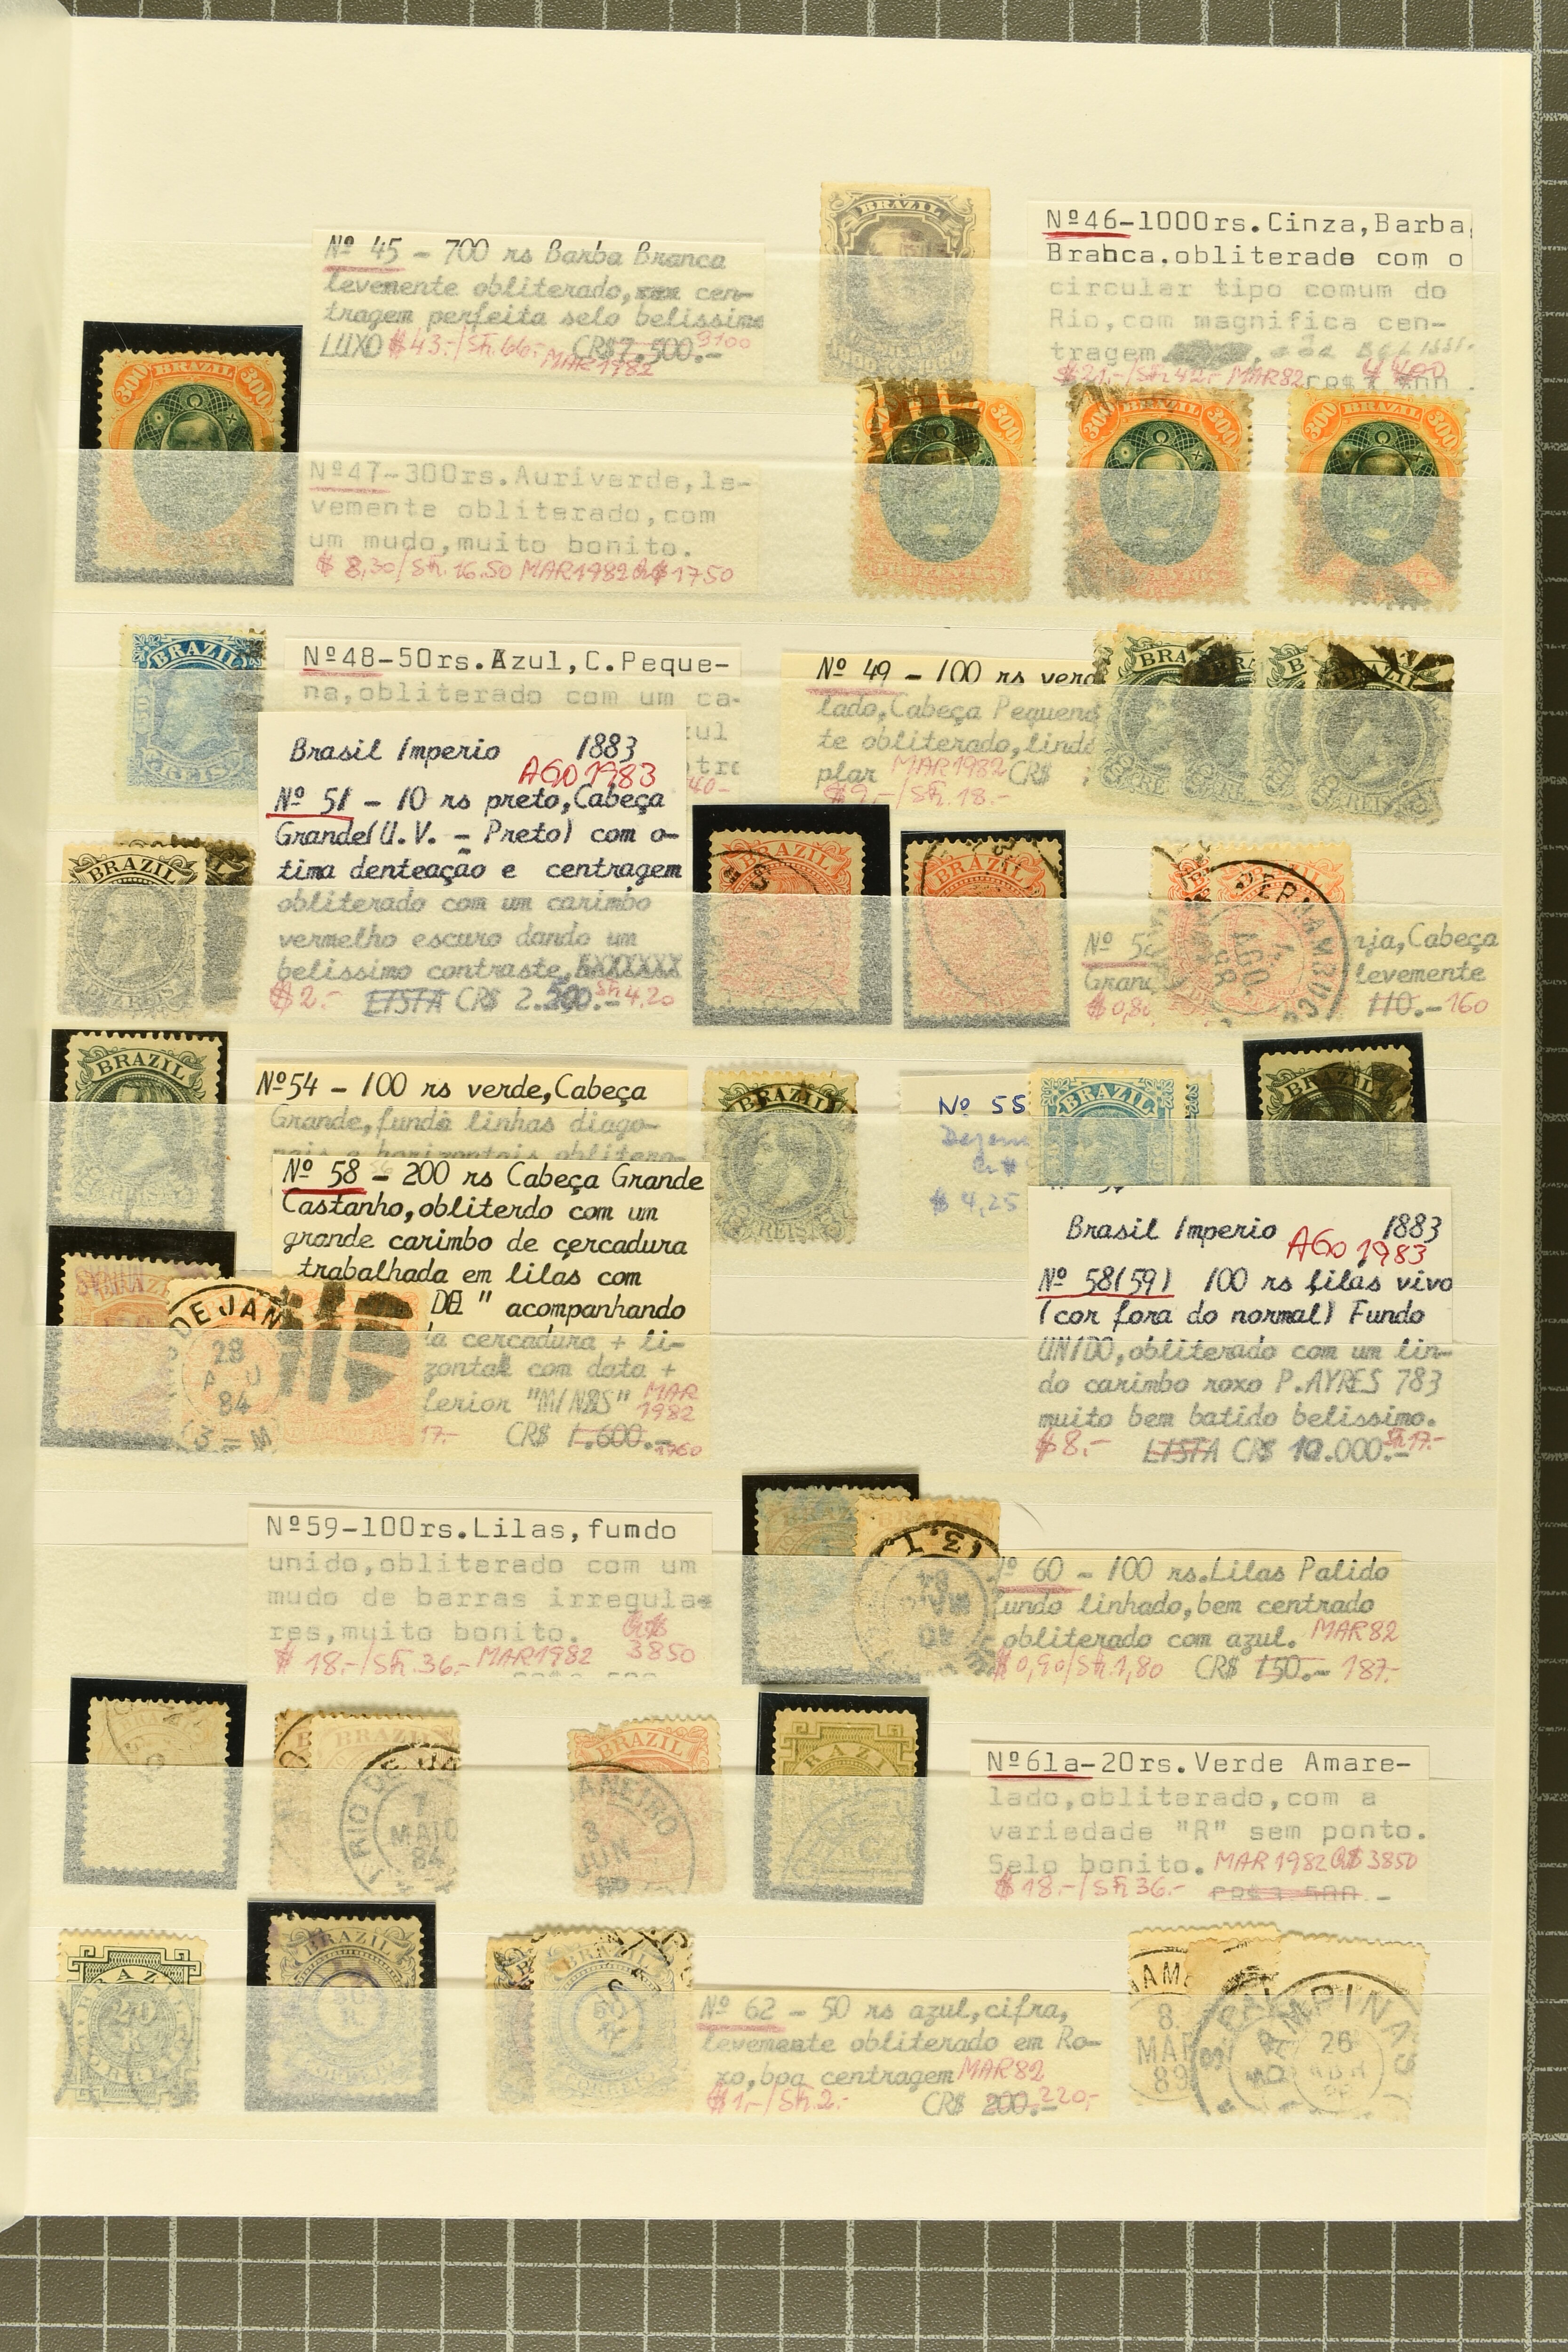 Nº 45 - 700 rs Barba Branca
levemente obliterado, cen-
tragem perfeita selo belissimo
LUXO $43.-/Sfr. 66.- CR$ 7.500.- 9100
MAR 1982
BRAZIL
Nº46-1000rs.Cinza,Barba
Branca.obliterado com o
circular tipo comum do
Rio,com magnifica cen-
tragem
$21.-/Sfr. 42.- MAR82 4400
300 BRAZIL 300
Nº47-300rs.Auriverde,le-
vemente obliterado,com
um mudo,muito bonito.
$ 8,30/Sfr. 16.50 MAR1982 Cr$ 1750
300
300 BRAZIL 300
300 BRAZIL 300
BRAZIL
REIS
Nº48-50rs.Azul,C.Peque-
na,obliterado com um ca-
zul
40-
Nº 49 - 100 rs verd
lado,Cabeça Pequena
te obliterado,lindo
plar MAR1982 CR$
$9.-/Sfr. 18.-
BRA
BRAZIL
Brasil Imperio 1883
AGO 1983
Nº 51 - 10 rs preto,Cabeça
Grande(U.V. - Preto) com o-
tima denteação e centragem
obliterado com um carimbo
vermelho escuro dando um
belissimo contraste,XXXXXXX
$2.- LISTA CR$ 2.500.- Sfr 4,20
BRAZIL
DEZ REIS
BRAZIL
BRAZIL
PERNAMBUCO
Nº 5
Grand
$0,80
nja,Cabeça
levemente
110.- 160
BRAZIL
Nº54 - 100 rs verde,Cabeça
Grande,fundo linhas diago-
nais e horizontais oblitera-
BRAZIL
REIS
Nº 55
$ 4,25
BRAZIL
BRAZIL
Nº 58 - 200 rs Cabeça Grande
Castanho,obliterdo com um
grande carimbo de cercadura
trabalhada em lilas com
DEL " acompanhando
la cercadura + li-
zontal com data +
ferior "MINAS" MAR
1982
17.- CR$ 1.600.- 1760
DE JAN
28
84
Brasil Imperio 1883
AGO 1983
Nº 58(59) 100 rs lilás vivo
(cor fora do normal) Fundo
UNIDO,obliterado com um lin-
do carimbo roxo P.AYRES 783
muito bem batido belissimo.
$8,- LISTA CR$ 10.000.- Sfr 17.-
Nº59-100rs.Lilas,fumdo
unido,obliterado com um
mudo de barras irregula-
res,muito bonito. Cr$
$ 18.-/Sfr. 36.- MAR1982 3850
Nº 60 - 100 rs.Lilas Palido
fundo linhado,bem centrado
obliterado com azul. MAR82
$0,90/Sfr.1,80 CR$ 150.- 187.-
BRAZIL
RIO DE JA
7
MAIO
84
BRAZIL
ANEIRO
3
JUN
Nº61a-20rs.Verde Amare-
lado,obliterado,com a
variedade "R" sem ponto.
Selo bonito. MAR 1982 Cr$ 3850
$18.-/Sfr 36.-
BRAZIL
BRAZIL
Nº 62 - 50 rs azul,cifra,
levemente obliterado em Ro-
xo,boa centragem MAR82
$1,-/Sfr.2.- CR$ 200.- 220,-
8
MAR
89
CAMPINAS
26
ABR